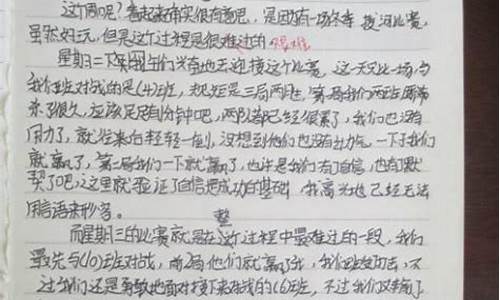 这个周呢？看起来确实很有意思，是因为有一场冬季拔河比赛，
虽然好玩，但是这个过程是很难过的 艰难
星期二下午同学们兴奋地去迎接这个比赛，这一天又比一场，与
我们班对战的是(4)班，规矩是三局两胜，第一局我们两班
来了很久，应该足足有1分钟吧，两队都已经很累了，我们也没有
用力了，就后来白轻轻一
就赢了，第二局我们一下就赢了，也许是我们有了自信，也有了默
契了吧，这里就验证了自信是成功的基础，我高兴地已经无法
用言语来形容。
整
而星期三的比赛就是在这个过程中最难过的一段，我们
最先与(10)班对战，前2局他们就赢了我，我们班
过我们还是勇敢地面对接下来对战的(6)班，不过我们又输了